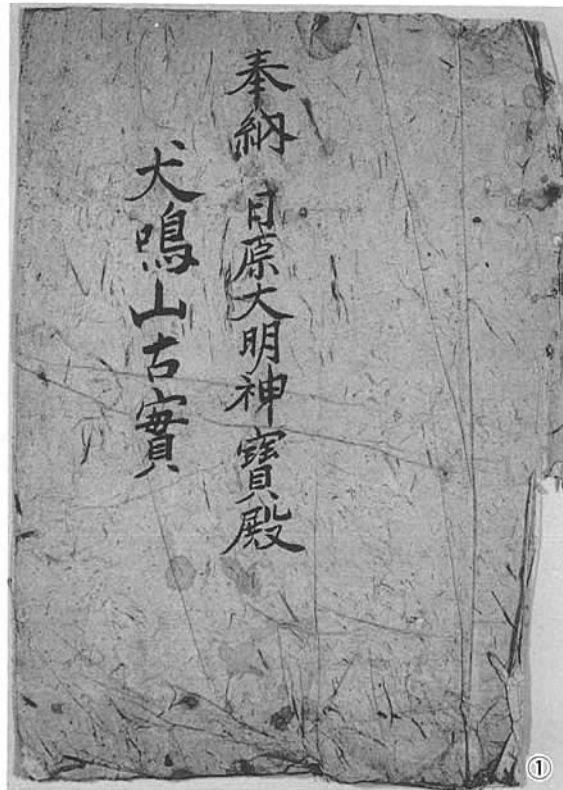 奉納 日原大明神寶殿
犬鳴山古實
①